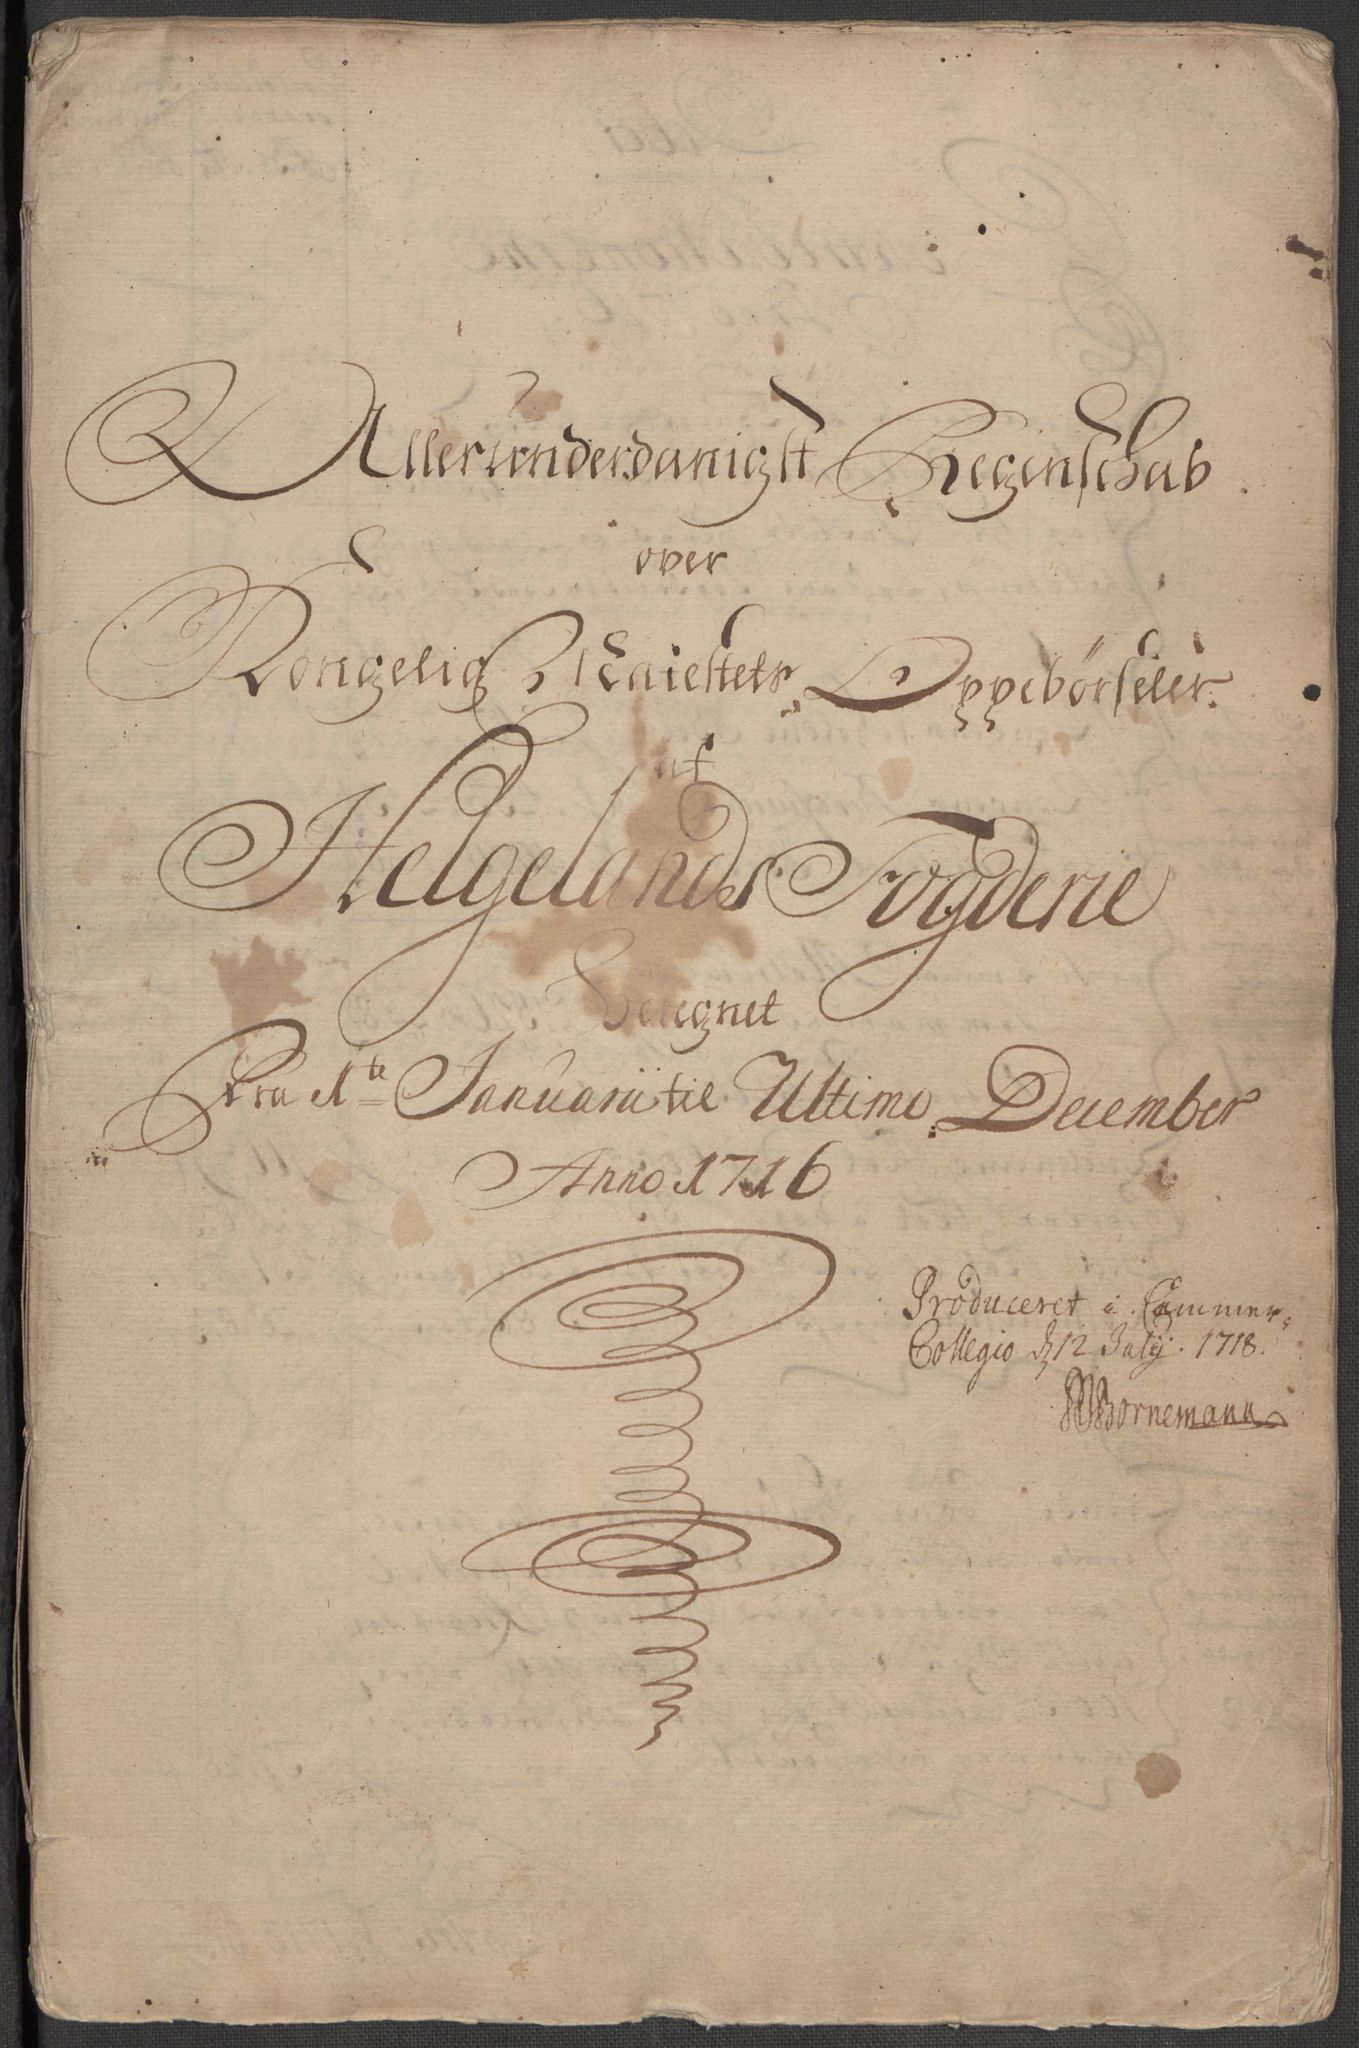 Allerunderdanigst Regenschab
over
Kongelig Maiestets Oppebörseler.
af
Helgelands Fogderie
Beregnet
Fra 1te Januarii til Ultimo December
Anno 1716
Produceret i Cammer-
Collegio d 12 July. 1718.
Bornemann